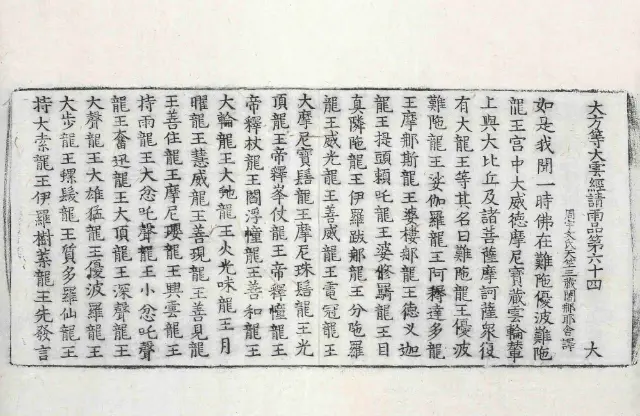 大方等大雲經請雨品第六十四 大
周宇文氏天竺三藏闍那耶舍譯
如是我聞一時佛在難陁優波難陁
龍王宮中大威德摩尼寶藏雲輪輦
上與大比丘及諸菩薩摩訶薩衆復
有大龍王等其名曰難陁龍王優波
難陁龍王娑伽羅龍王阿耨達多龍
王摩那斯龍王婆樓那龍王德叉迦
龍王提頭賴吒龍王婆修羯龍王目
真隣陁龍王伊羅跋那龍王分陁羅
龍王威光龍王善威龍王電冠龍王
大摩尼寶髻龍王摩尼珠髻龍王光
頂龍王帝釋峯仗龍王帝釋幢龍王
帝釋杖龍王閻浮幢龍王善和龍王
大輪龍王大虵龍王火光味龍王月
曜龍王慧威龍王善威龍王善見龍
王善住龍王摩尼瓔龍王興雲龍王
持雨龍王大忿吒聲龍王小忿吒聲
龍王奮迅龍王大頂龍王深聲龍王
大聲龍王大雄猛龍王優波羅龍王
大步龍王螺髮龍王質多羅仙龍王
持大索龍王伊羅樹葉龍王先發言